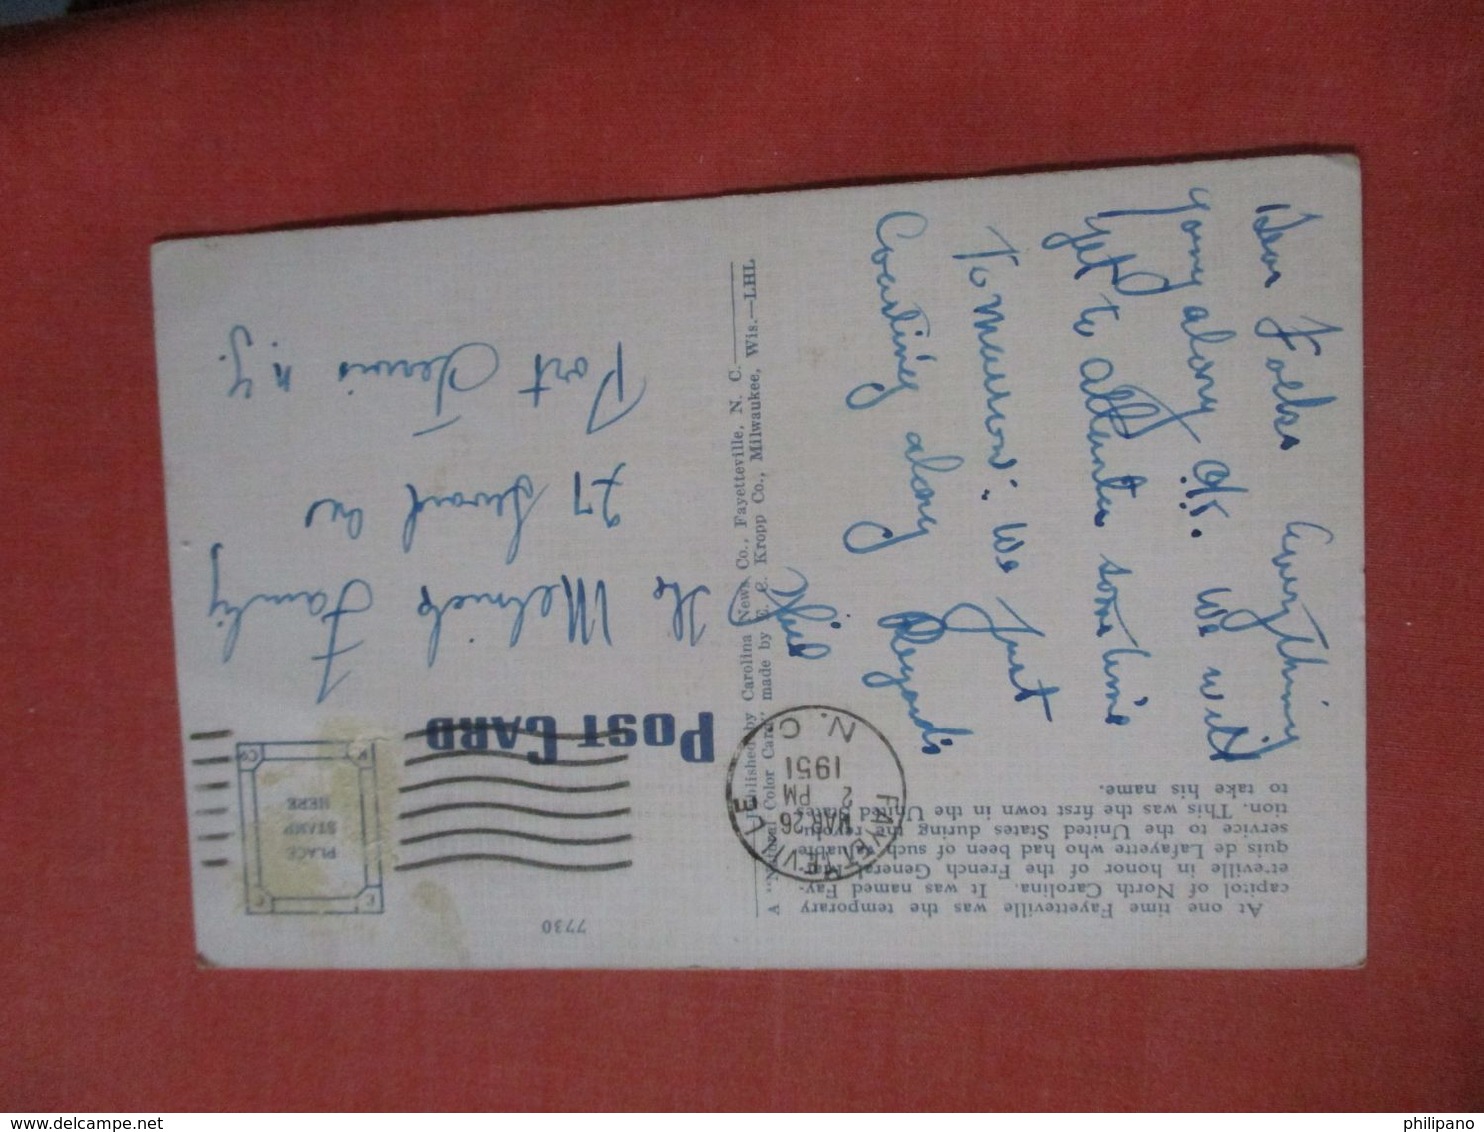 At one time Fayetteville was the temporary
capitol of North Carolina. It was named Fay-
etteville in honor of the French General Mar-
quis de Lafayette who had been of such valuable
service to the United States during the revolu-
tion. This was the first town in the United States
to take his name.
7730
PLACE
STAMP
HERE
POST CARD
FAYETTEVILLE
MAR 26
2 PM
1951
N. C.
A "Natural Color Card" made by E. C. Kropp Co., Milwaukee, Wis.—LHL
Published by Carolina News Co., Fayetteville, N. C.
Dear Folks Everything
going along OK. We will
get to atlanta sometime
Tomorrow. We Just
Coasting along Regards
Phil
The Melnick Family
27 Seward Ave
Port Jervis N.Y.
www.delcampe.net
philipano